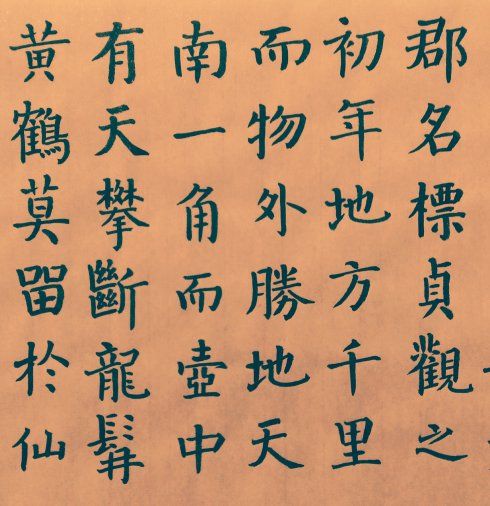 郡名標貞觀之
初年地方千里
而物外勝地天
南一角而壺中
有天攀斷龍髯
黃鶴莫留於仙